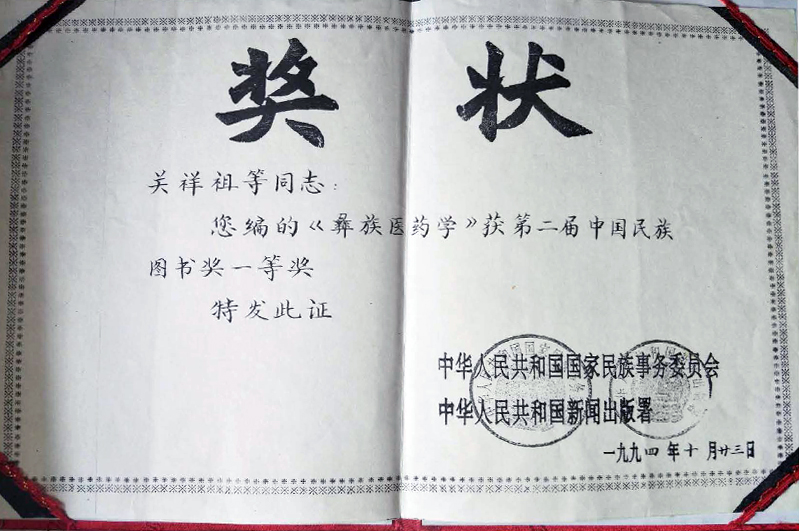 奖状
关祥祖等同志:
您编的《彝族医药学》获第二届中国民族
图书奖一等奖
特发此证
中华人民共和国国家民族事务委员会
中华人民共和国新闻出版署
一九九四年十月廿三日